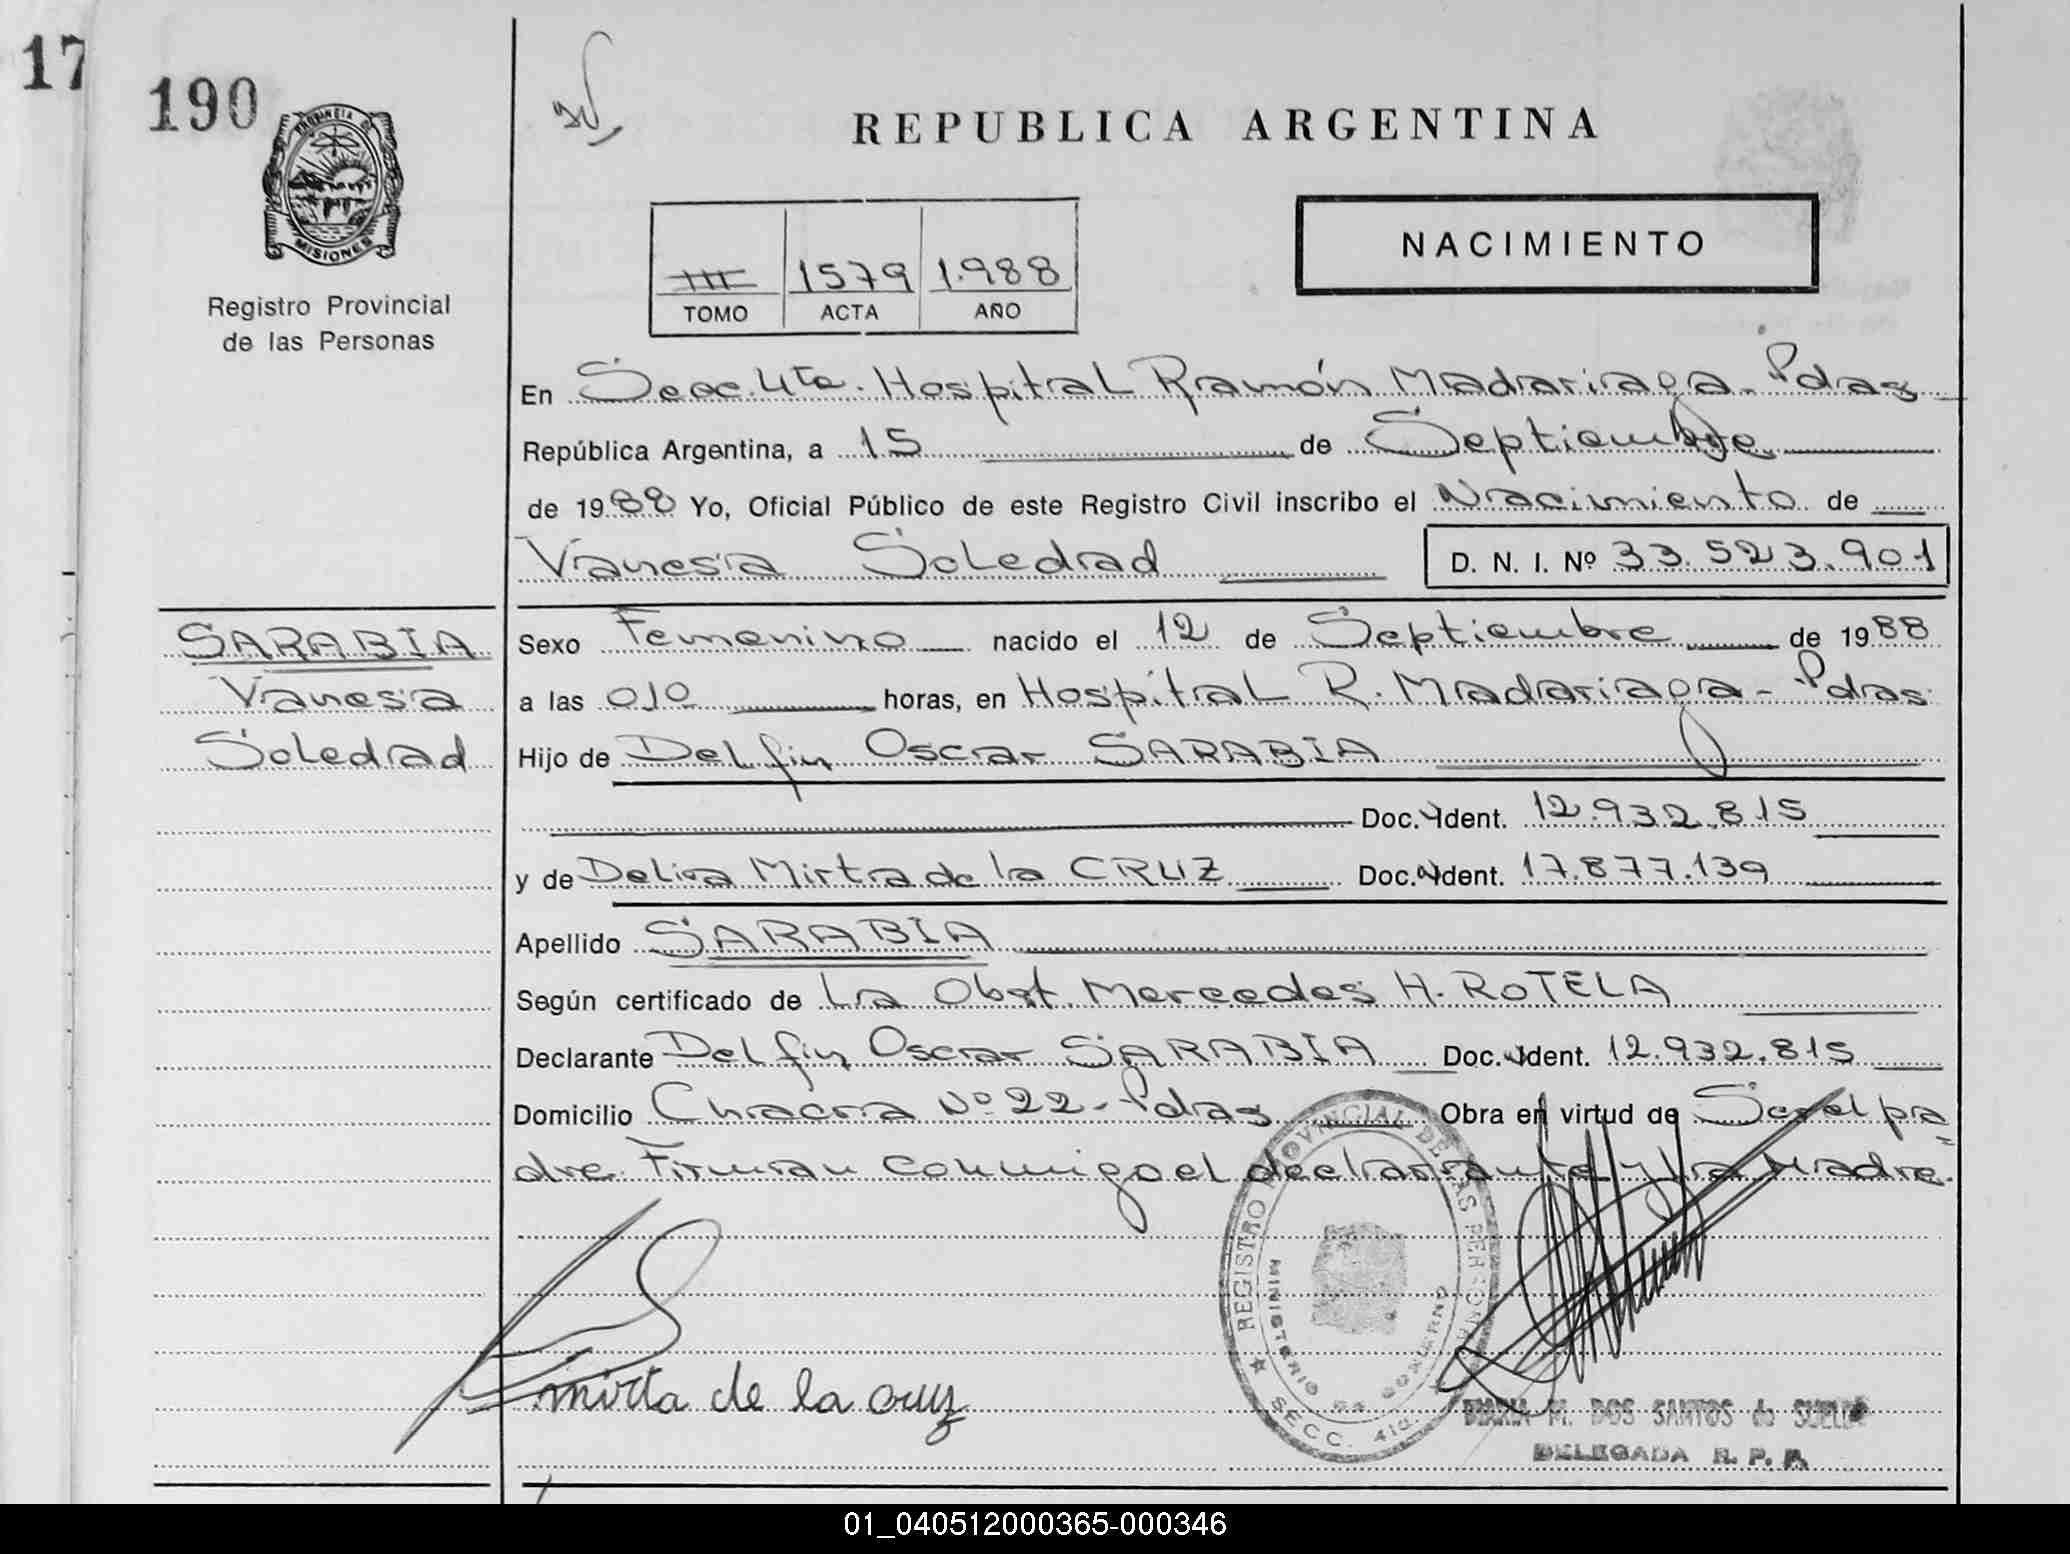 17
190
PROVINCIA DE
MISIONES
Registro Provincial
de las Personas
REPUBLICA ARGENTINA
NACIMIENTO
III 1579 1.988
TOMO ACTA AÑO
En Secc. 4ta. Hospital Ramón Madariaga - Pdas
República Argentina, a 15 de Septiembre
de 1988 Yo, Oficial Público de este Registro Civil inscribo el Nacimiento de
Vanesa Soledad D. N. I. Nº 33.523.901
SARABIA
Vanesa
Soledad
Sexo Femenino nacido el 12 de Septiembre de 1988
a las 010 horas, en Hospital R. Madariaga - Pdas
Hijo de Delfin Oscar SARABIA
Doc. Ident. 12.932.815
y de Delia Mirta de la CRUZ Doc. Ident. 17.877.139
Apellido SARABIA
Según certificado de La Obst. Mercedes H. ROTELA
Declarante Delfin Oscar SARABIA Doc. Ident. 12.932.815
Domicilio Chacra Nº 22 - Pdas Obra en virtud de Ser el pa=
dre. Firman conmigo el declarante y la Madre.
REGISTRO PROVINCIAL DE LAS PERSONAS
MINISTERIO DE GOBIERNO
SECC. 4ta.
mirta de la cruz
MARIA M. DOS SANTOS de SUELDO
DELEGADA R. P. P.
01_040512000365-000346